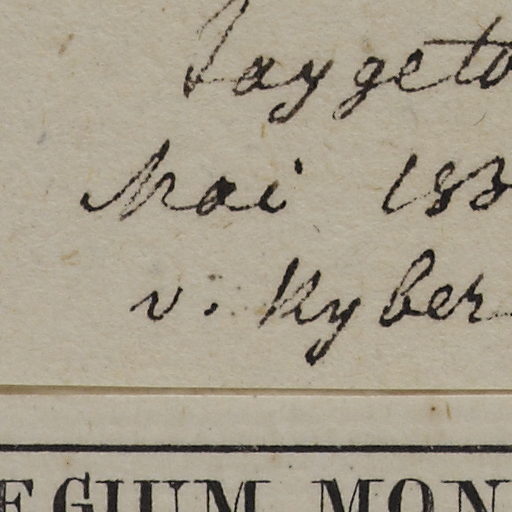 Taygeto
Mai 183
v. Kyber
EGIUM MON